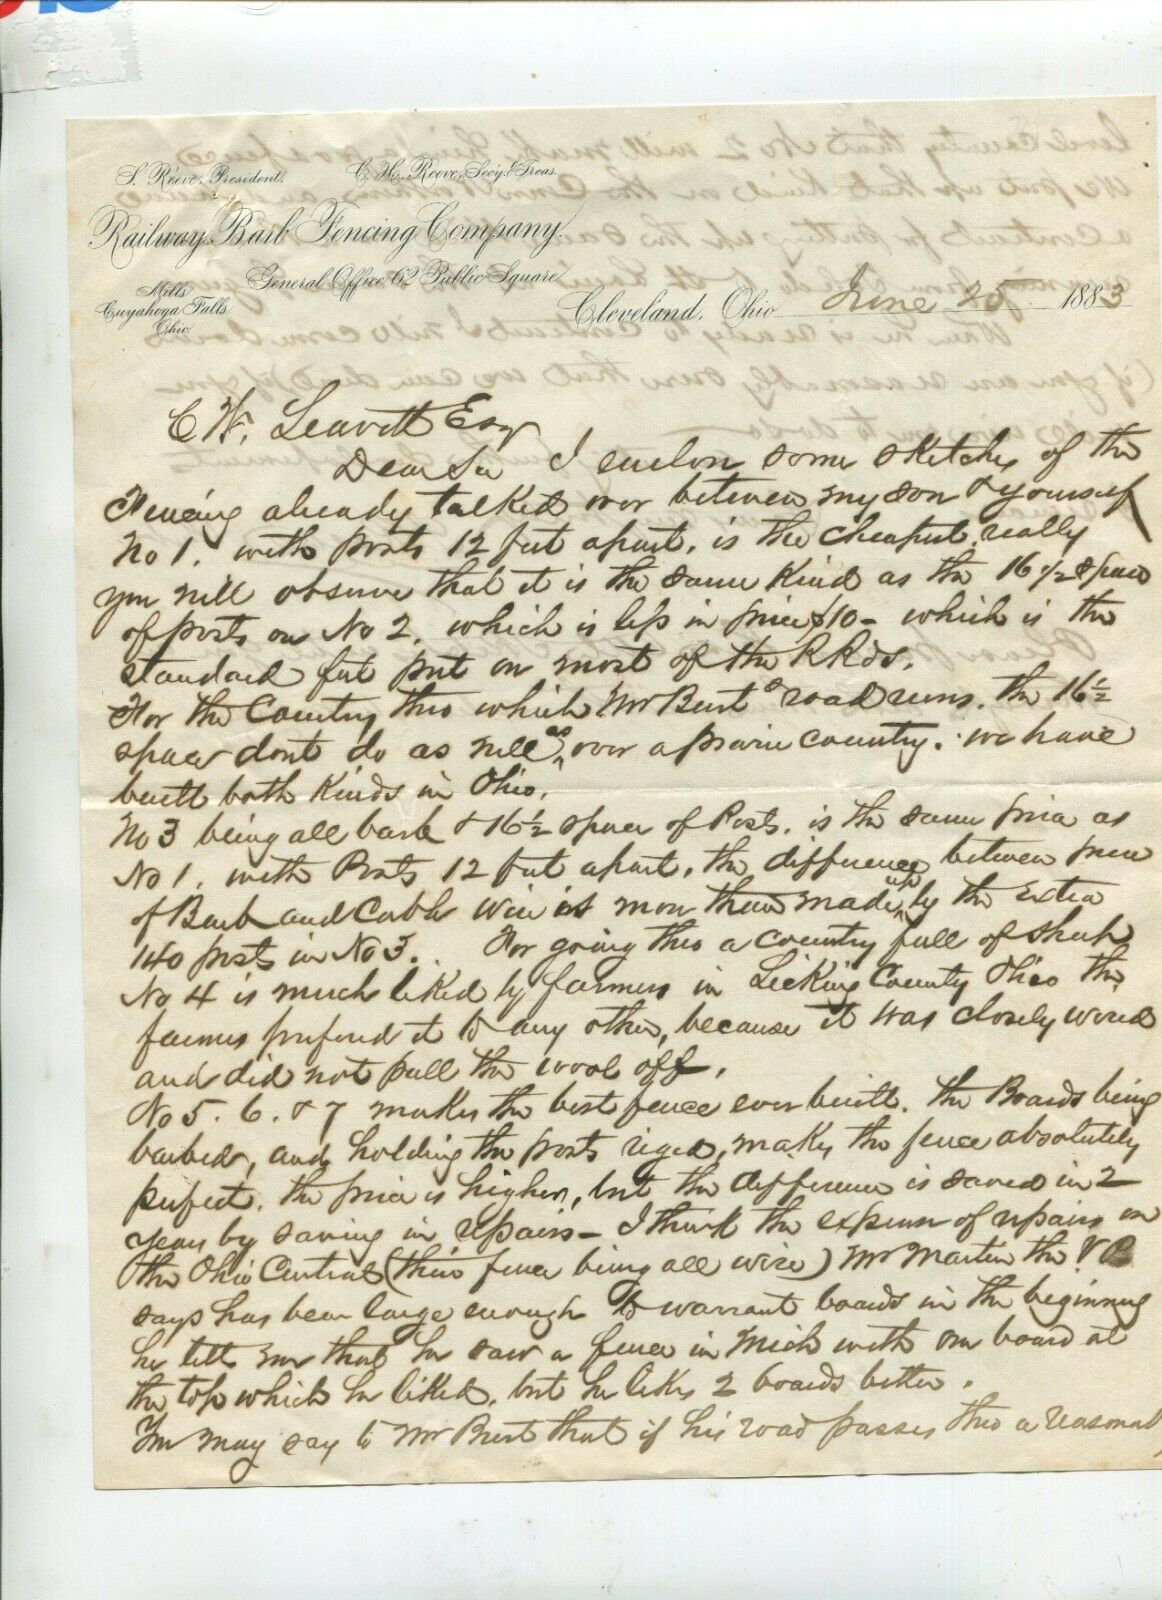 S. Reeve, President.
C. H. Reeve, Sec'y. & Treas.
Railway Barb Fencing Company.
General Office 62 Public Square
Mills
Cuyahoga Falls
Ohio.
Cleveland, Ohio June 25 1883
C. W. Leavitt Esqr
Dear Sir I enclose some sketches of the
Fencing already talked over between my son & yourself
No 1. with posts 12 feet apart. is the cheapest really
you will observe that it is the same kind as the 16 1/2 space
of posts on No 2. which is less in price $10 - which is the
standard put on most of the RRds.
For the Country thro which Mr Burt's road runs. the 16 1/2
space dont do as well as over a prairie country. we have
built both kinds in Ohio.
No 3 being all barb & 16 1/2 space of Posts. is the same price as
No 1. with Posts 12 feet apart. the difference between price
of Barb and Cable wire is more than made up by the extra
140 posts in No 3.. For going thro a country full of sheep
No 4 is much liked by farmers in Licking County Ohio the
farmers prefered it to any other, because it was closely wired
and did not pull the wool off.
No 5. 6. & 7 makes the best fence ever built. the Boards being
barbed, and holding the posts riged, makes the fence absolutely
perfect. the price is higher, but the difference is saved in 2
years by saving in repairs - I think the expense of repairs on
the Ohio Central (their fence being all wire) Mr Martin the V P
says has been large enough to warrant boards in the beginning
he tells me that he saw a fence in Mich with one board at
the top which he liked. but he likes 2 boards better.
You may say to Mr Burt that if his road passes thro a reasonab